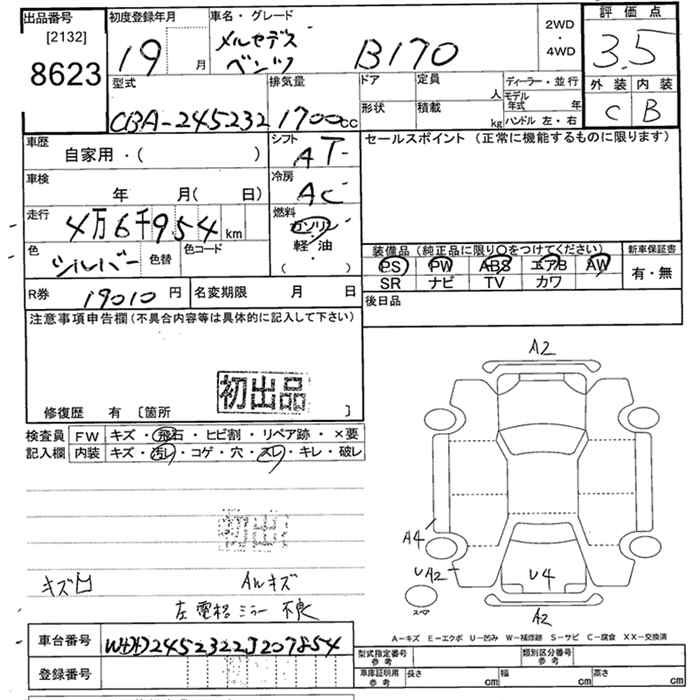 出品番号
[2132]
8623
初度登録年月
19 月
車名・グレード
メルセデス
ベンツ
B170
2WD
・
4WD
評価点
3.5
外装 内装
C B
型式
CBA-245232
排気量
1700cc
ドア
形状
定員
人
積載
kg
ディーラー・並行
モデル
年式 年
ハンドル 左・右
車歴
自家用・( )
シフト
AT
セールスポイント (正常に機能するものに限ります)
車検
年 月( 日)
冷房
AC
走行
4万6千954km
燃料
ガソリン
軽油
( )
色
シルバー
色替
色コード
装備品 (純正品に限り○をつけてください)
PS PW ABS エアB AW
SR ナビ TV カワ
新車保証書
有・無
R券 19010円
名変期限 月 日
後日品
注意事項申告欄 (不具合内容等は具体的に記入して下さい)
初出品
修復歴 有 [箇所 ]
検査員
記入欄
FW キズ・飛石・ヒビ割・リペア跡・×要
内装 キズ・汚レ・コゲ・穴・スレ・キレ・破レ
初出
キズ
AWキズ
左電格ミラー不良
A2
A4
UA2
U4
A2
スペア
A−キズ E−エクボ U−凹み W−補修跡 S−サビ C−腐食 XX−交換済
車台番号 WDD2452322J207854
登録番号
型式指定番号
参考
類別区分番号
参考
車庫証明用
参考
長さ cm
幅 cm
高さ cm